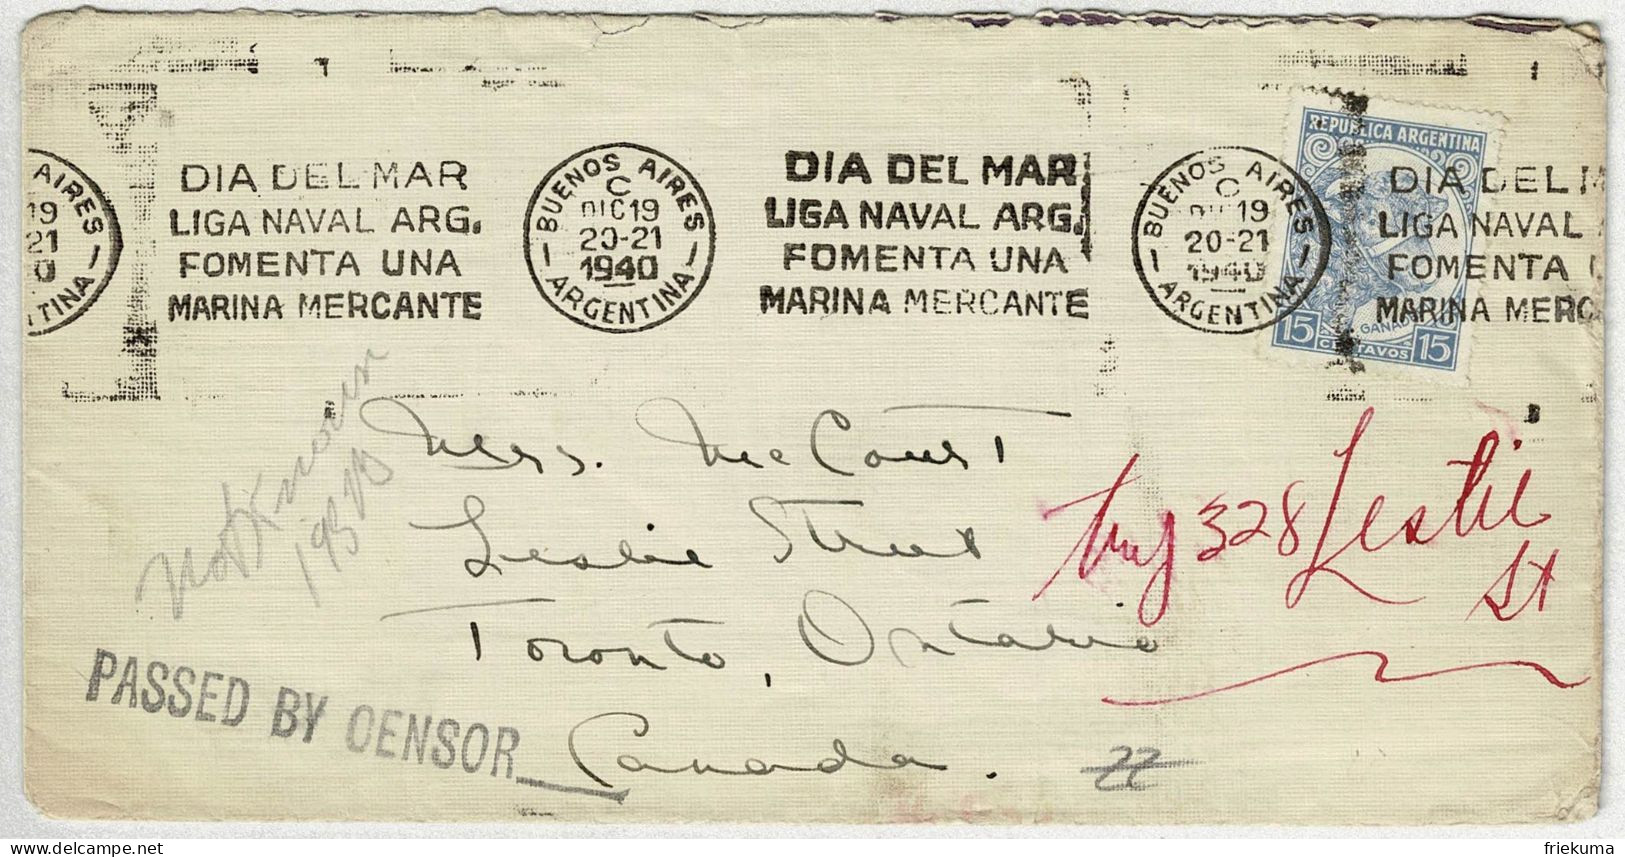 AIRES
19
21
0
TINA
DIA DEL MAR
LIGA NAVAL ARG.
FOMENTA UNA
MARINA MERCANTE
BUENOS AIRES
C
DIC 19
20-21
1940
ARGENTINA
DIA DEL MAR
LIGA NAVAL ARG.
FOMENTA UNA
MARINA MERCANTE
BUENOS AIRES
C
DIC 19
20-21
1940
ARGENTINA
DIA DEL
LIGA NAVAL
FOMENTA
MARINA MERC
REPUBLICA ARGENTINA
15 CENTAVOS 15
Not Known
Mrs. McCourt
Leslie Street
Toronto, Ontario
Canada.
328 Leslie
St
PASSED BY CENSOR
22
friekuma